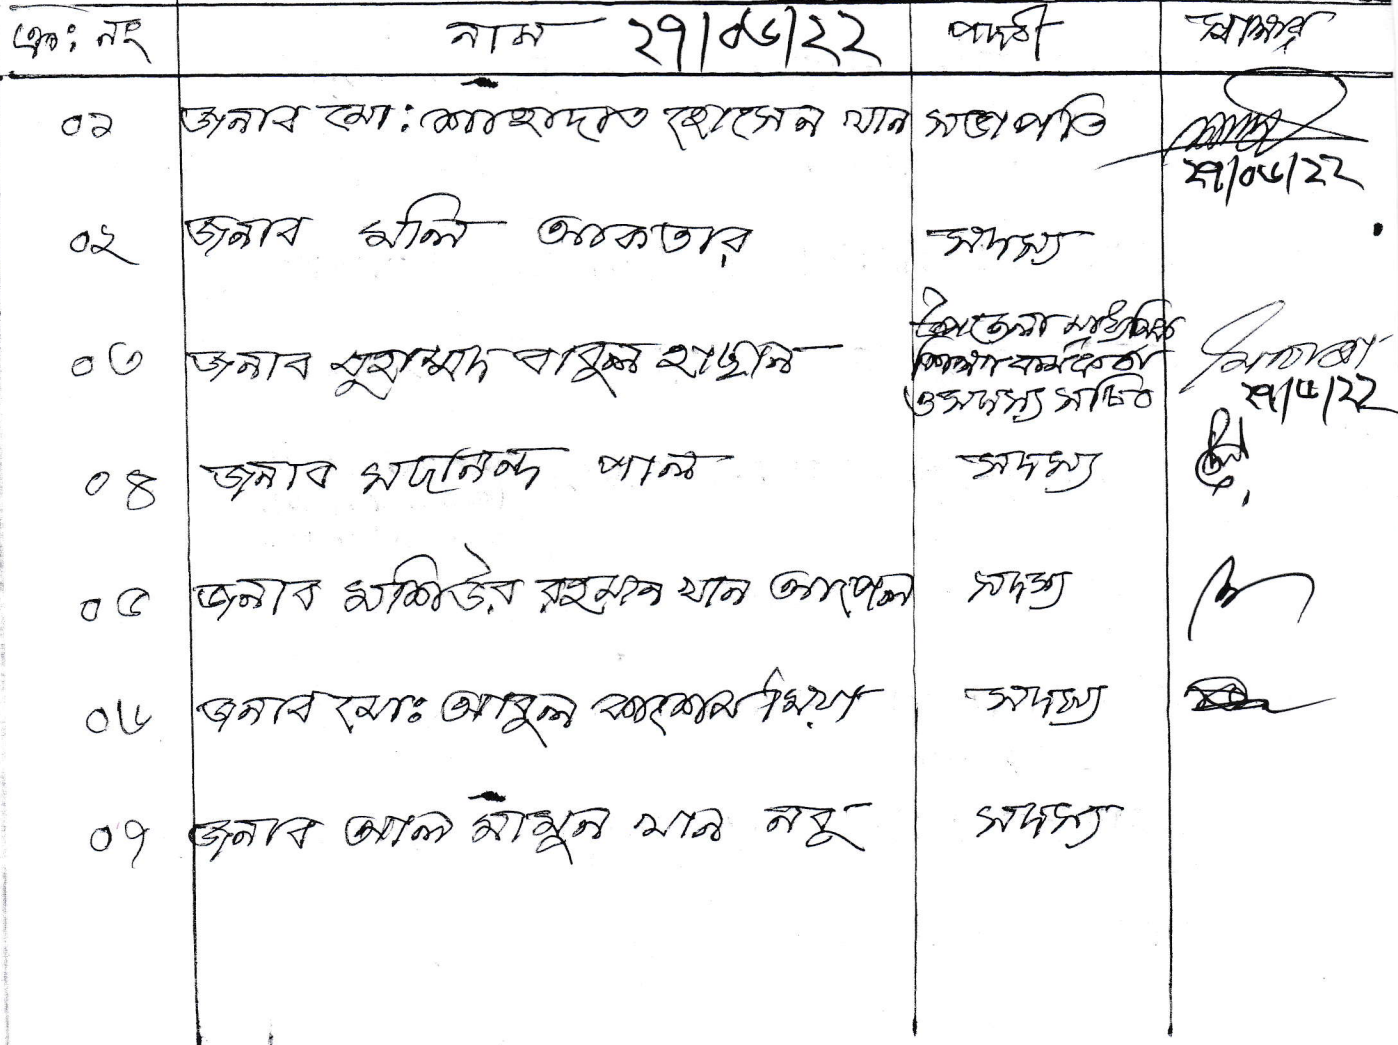 ক্রঃ নং নাম ২৭/০৬/২২ পদবী স্বাক্ষর
০১ জনাব মো: শাহাদাত হোসেন খান সভাপতি
২৭/০৬/২২
০২ জনাব মলি আকতার সদস্য
উপজেলা মাধ্যমিক
০৩ জনাব মুহাম্মদ বাবুল হাছান শিক্ষা কর্মকর্তা
ও সদস্য সচিব ২৭/৬/২২
০৪ জনাব সদানন্দ পাল সদস্য
০৫ জনাব মশিউর রহমান খান আপেল সদস্য
০৬ জনাব মোঃ আবুল কাশেম মিয়া সদস্য
০৭ জনাব আল মামুন খান নবু সদস্য